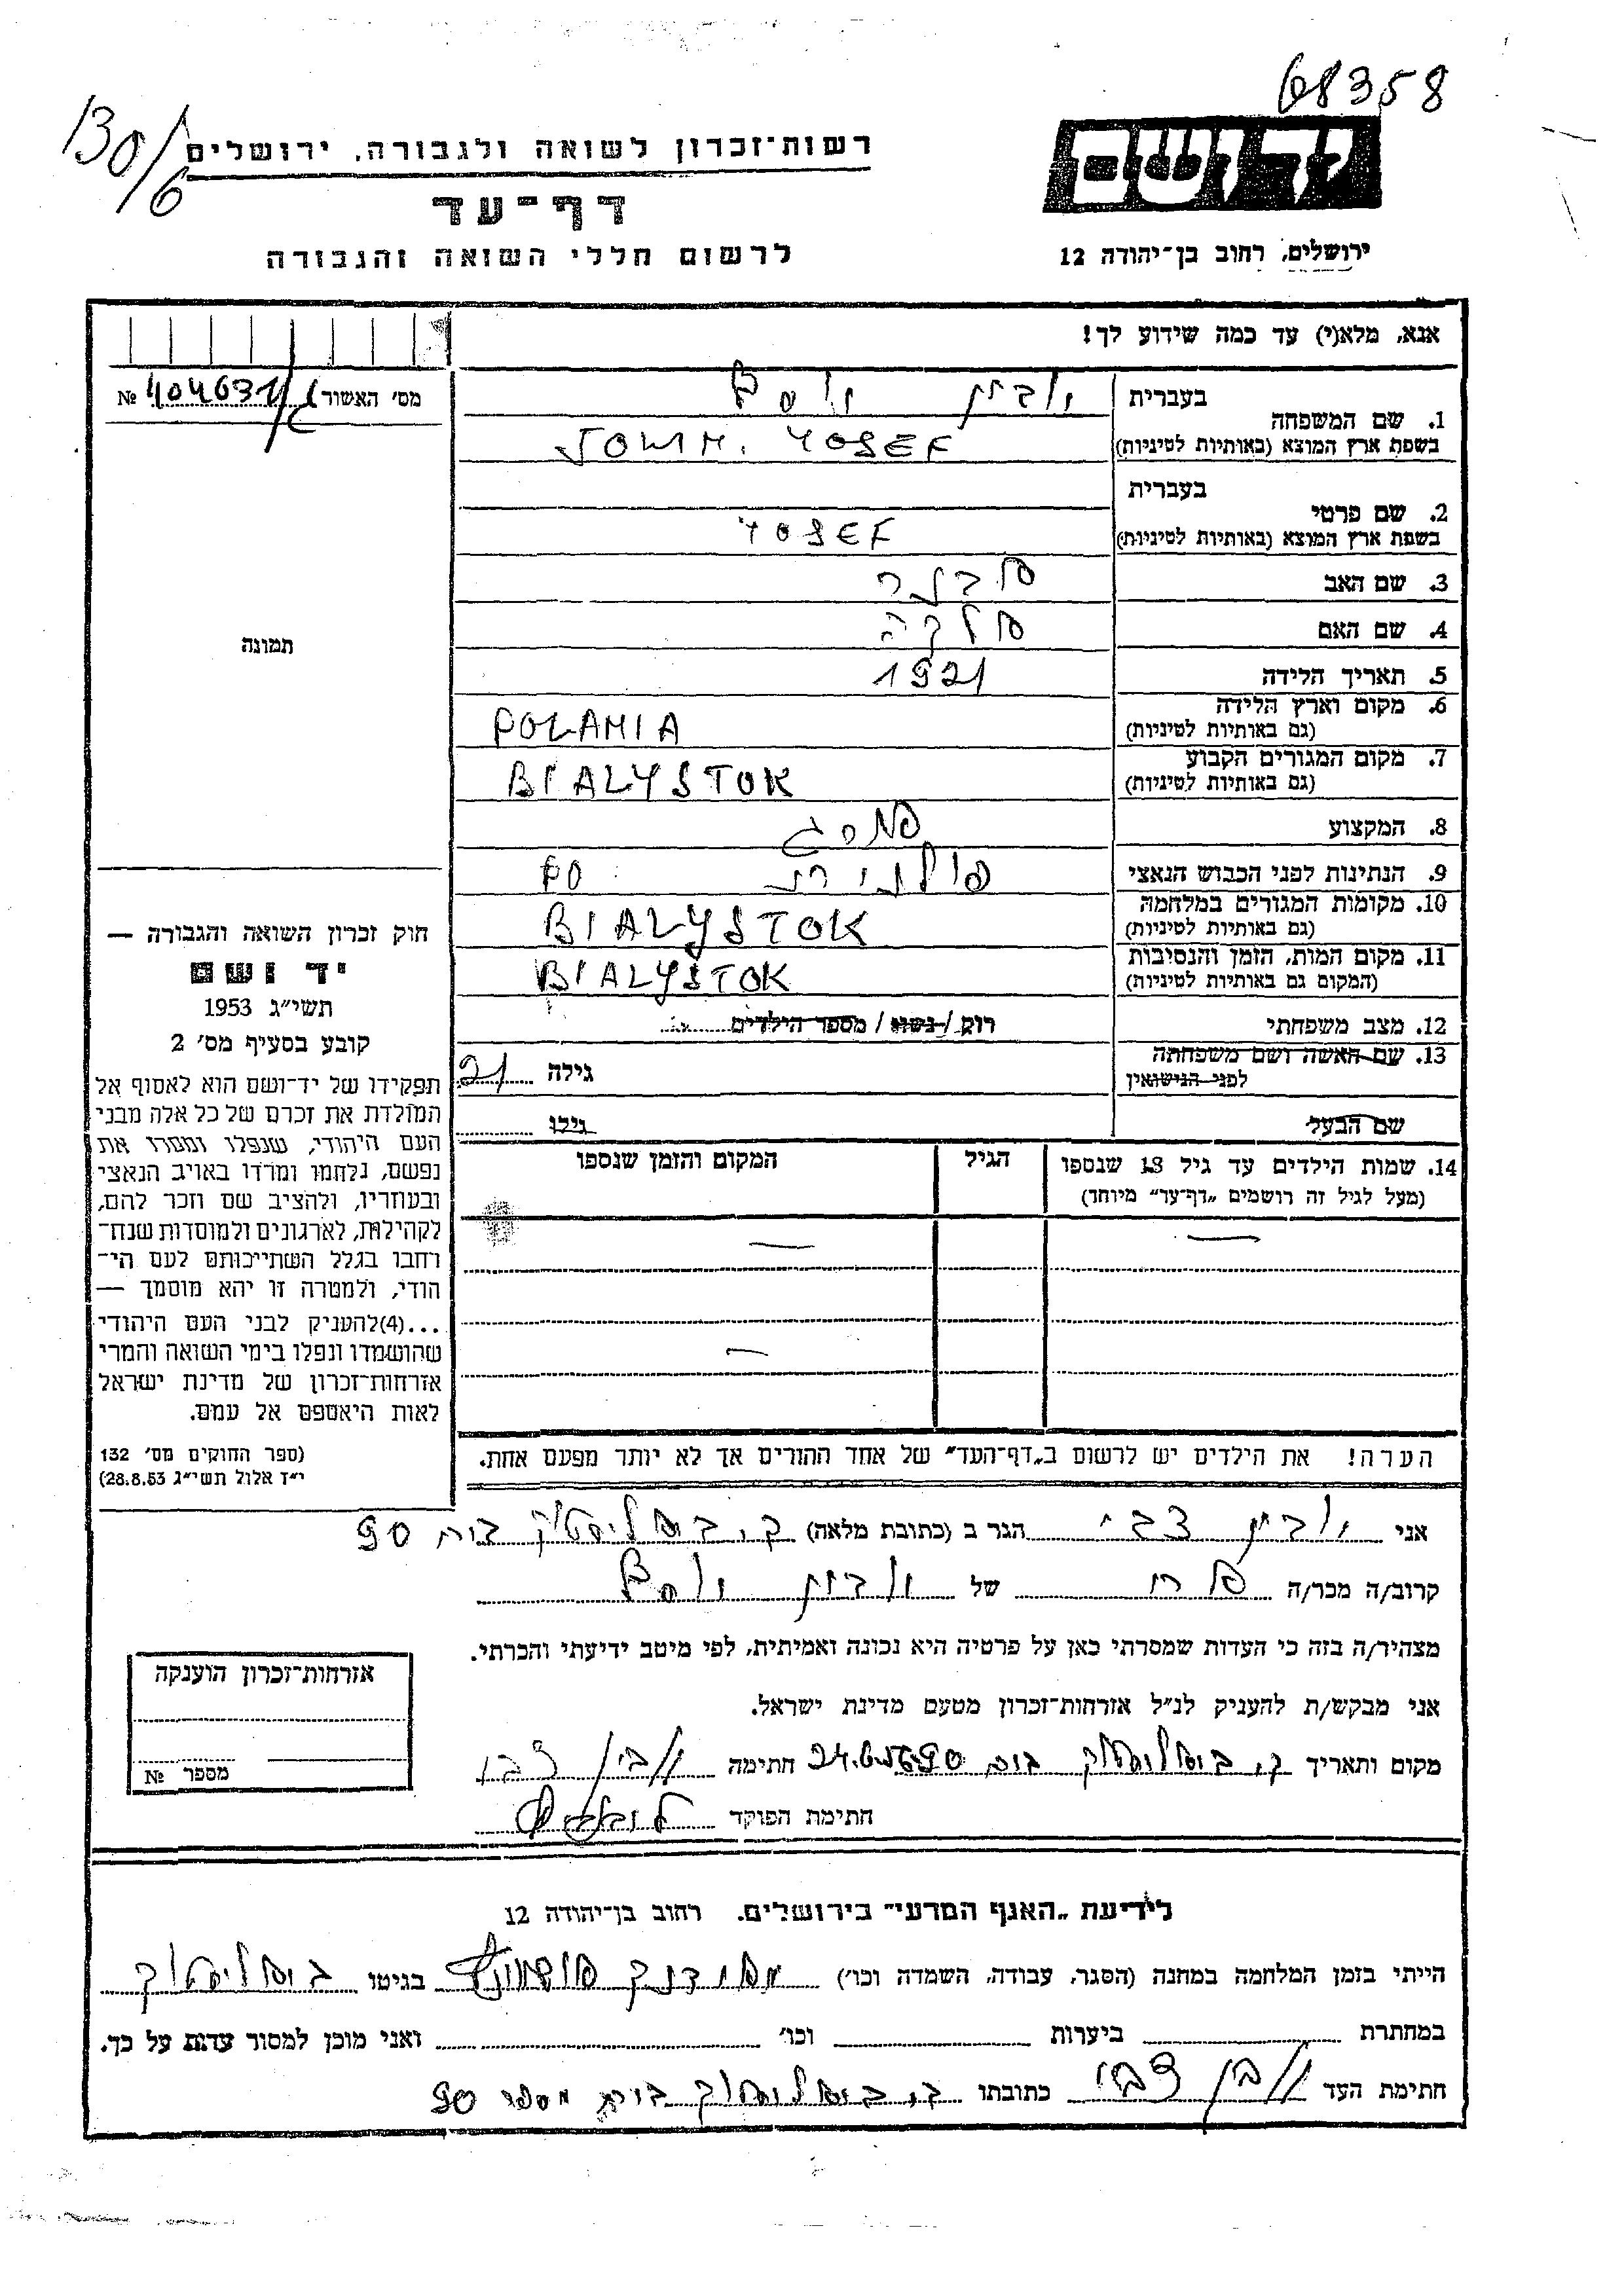 68358
130/6
יד ושם
רשות־זכרון לשואה ולגבורה, ירושלים
דף־עד
לרשום חללי השואה והגבורה
ירושלים, רחוב בן־יהודה 12
אנא, מלא(י) עד כמה שידוע לך!
מס' האשור №
1. שם המשפחה
בעברית יובין יוסף
בשפת ארץ המוצא (באותיות לטיניות) YOSEF
2. שם פרטי
בעברית
בשפת ארץ המוצא (באותיות לטיניות) YOSEF
3. שם האב
4. שם האם מלכה
5. תאריך הלידה 1921
6. מקום וארץ הלידה
(גם באותיות לטיניות) POLANIA
7. מקום המגורים הקבוע
(גם באותיות לטיניות) BIALYSTOK
8. המקצוע
9. הנתינות לפני הכבוש הנאצי פולנית PO
10. מקומות המגורים במלחמה
(גם באותיות לטיניות) BIALYSTOK
11. מקום המות, הזמן והנסיבות
(המקום גם באותיות לטיניות) BIALYSTOK
12. מצב משפחתי רוק / נשוי / מספר הילדים
13. שם האשה ושם משפחתה
לפני הנישואין גילה 21
שם הבעל גילו
14. שמות הילדים עד גיל 18 שנספו הגיל המקום והזמן שנספו
(מעל לגיל זה רושמים „דף־עד" מיוחד)
תמונה
חוק זכרון השואה והגבורה —
יד ושם
תשי"ג 1953
קובע בסעיף מס' 2
תפקידו של יד־ושם הוא לאסוף אל
המולדת את זכרם של כל אלה מבני
העם היהודי, שנפלו ומסרו את
נפשם, נלחמו ומרדו באויב הנאצי
ובעוזריו, ולהציב שם וזכר להם,
לקהילות, לארגונים ולמוסדות שנח־
רחבו בגלל השתייכותם לעם הי־
הודי, ולמטרה זו יהא מוסמך —
...(4) להעניק לבני העם היהודי
שהושמדו ונפלו בימי השואה והמרי
אזרחות־זכרון של מדינת ישראל
לאות היאספם אל עמם.
(ספר החוקים מס' 132
י"ד אלול תשי"ג 28.8.53)
הערה! את הילדים יש לרשום ב„דף־העד" של אחד ההורים אך לא יותר מפעם אחת.
אני יובין צבי הגר ב (כתובת מלאה) ק. ביאליסטוק בית 90
קרוב/ה מכר/ה של יובין יוסף
מצהיר/ה בזה כי העדות שמסרתי כאן על פרטיה היא נכונה ואמיתית, לפי מיטב ידיעתי והכרתי.
אני מבקש/ת להעניק לנ"ל אזרחות־זכרון מטעם מדינת ישראל.
מקום ותאריך ק. ביאליסטוק בית 90 חתימה יובין צבי
חתימת הפוקד
אזרחות־זכרון הוענקה
מספר №
לידיעת „האגף המדעי" בירושלים. רחוב בן־יהודה 12
הייתי בזמן המלחמה במחנה (הסגר, עבודה, השמדה וכו') מיידנק בגיטו ביאליסטוק
במחתרת ביערות וכו' ואני מוכן למסור עדות על כך.
חתימת העד יובין צבי כתובתו ק. ביאליסטוק בית מספר 90